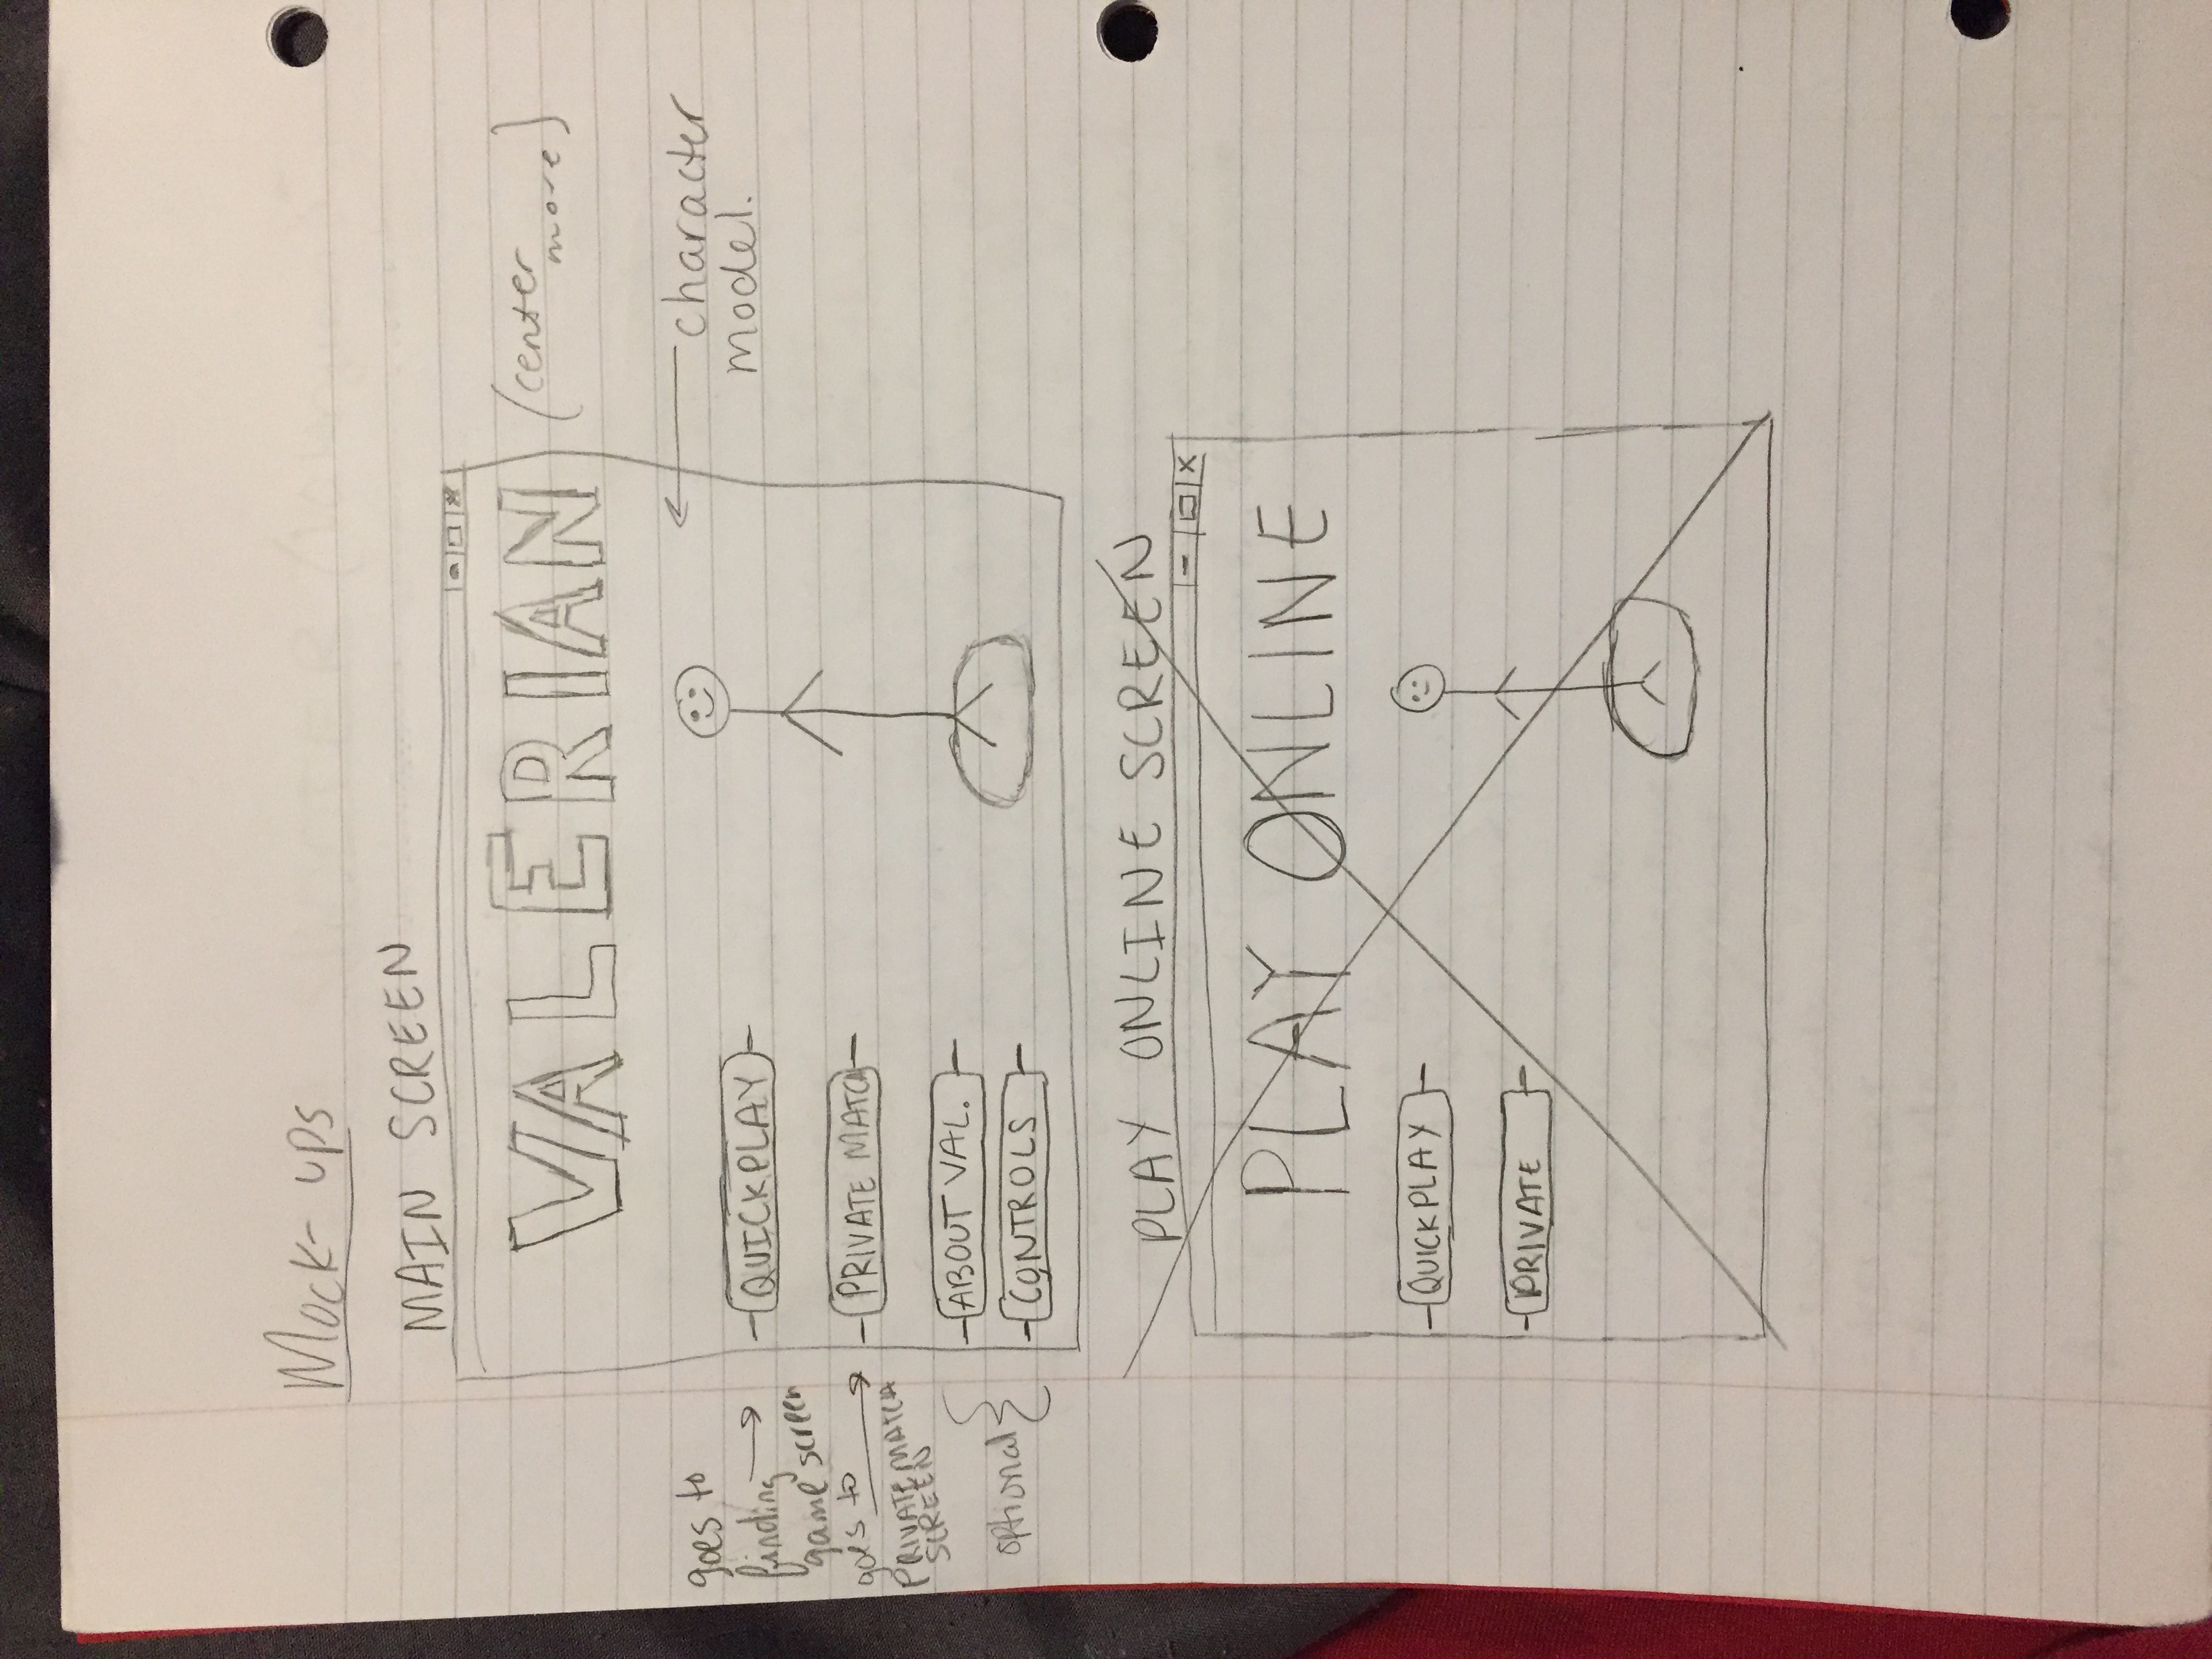 Mock-ups
MAIN SCREEN
VALERIAN
(center
more)
character
model.
goes to
finding
game screen
QUICKPLAY
goes to
PRIVATE MATCH
SCREEN
PRIVATE MATCH
optional
ABOUT VAL.
CONTROLS
PLAY ONLINE SCREEN
PLAY ONLINE
QUICKPLAY
PRIVATE